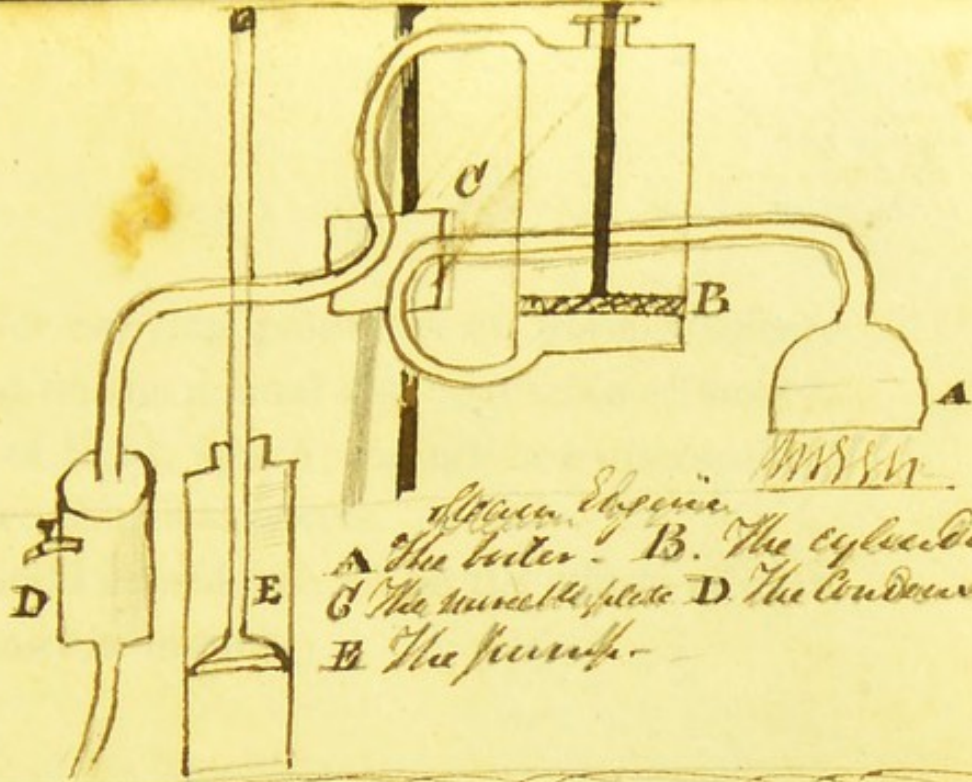 C
B
A
D
E
Steam Engine
A The boiler - B. The cylinde
C The plate D The Condens
E The pump -